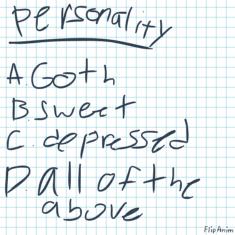 Personality
A. Goth
B. sweet
C. depressed
D all of the
above
FlipAnim